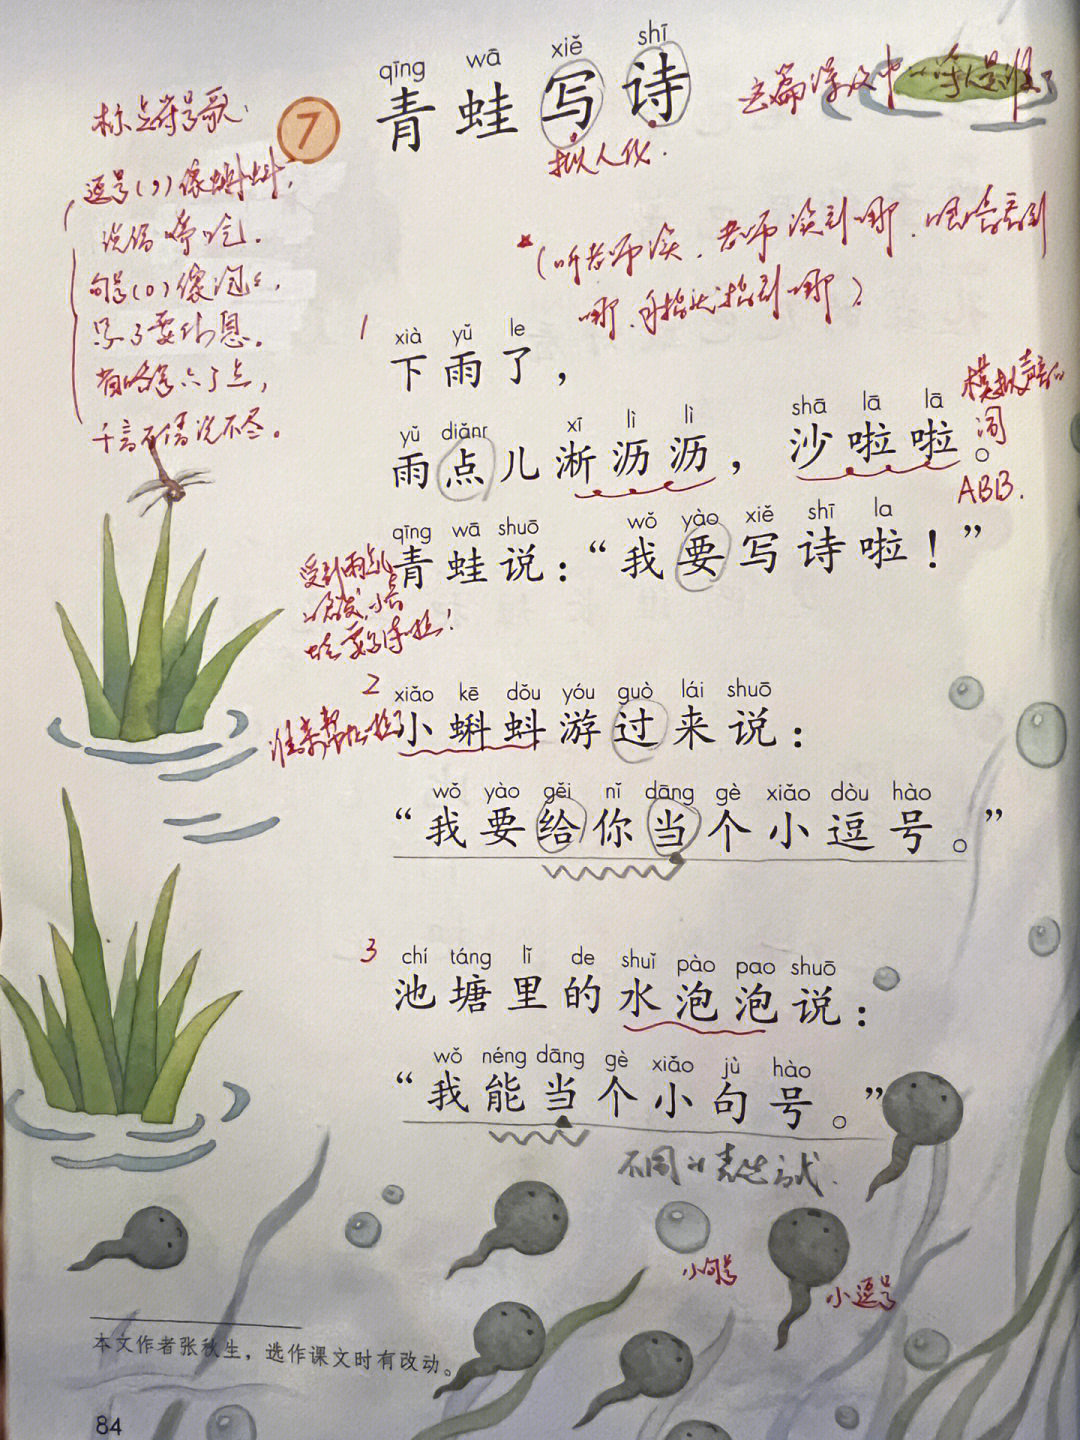 qīng wā xiě shī
7 青蛙写诗
拟人化.
标点符号歌:
逗号(,)像蝌蚪,
句号(o)像泡泡,
省略号六个点,
千言万语说不尽。
(听老师读,老师读到哪,眼睛看到
哪,手指头指到哪)
1
xià yǔ le
下雨了，
yǔ diǎnr xī lì lì shā lā lā
雨点儿淅沥沥，沙啦啦。
模拟声音的
词
ABB.
qīng wā shuō wǒ yào xiě shī la
青蛙说：“我要写诗啦！”
2
xiǎo kē dǒu yóu guò lái shuō
小蝌蚪游过来说：
wǒ yào gěi nǐ dāng gè xiǎo dòu hào
“我要给你当个小逗号。”
3
chí táng lǐ de shuǐ pào pao shuō
池塘里的水泡泡说：
wǒ néng dāng gè xiǎo jù hào
“我能当个小句号。”
不同的表达方式.
小句号
小逗号
本文作者张秋生，选作课文时有改动。
84